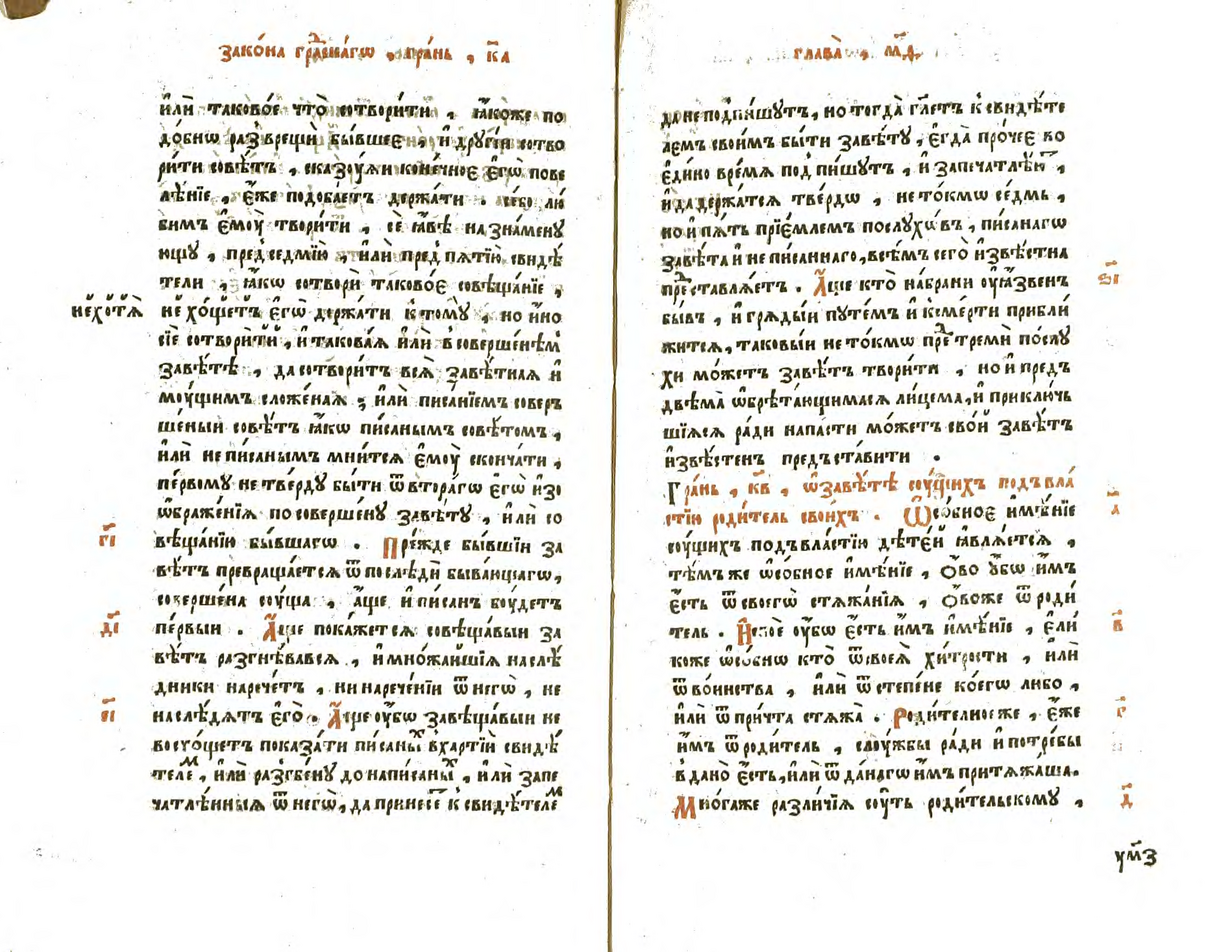 зако́на гра́дскагѡ , гра́нь , к҃а
и҆лѝ таково́е что̀ сотвори́ти , ꙗ҆́коже по
до́бнѡ разⸯврещѝ бы́вшее , и҆ дрꙋгі́и сотво
ри́ти совѣ́тъ , сказꙋ́ѧи коне́чное є҆гѡ̀ пове
лѣ́нїе , є҆́же подоба́етъ держа́ти . се́бо лю
бимъ є҆мꙋ̀ твори́ти , сѐ ꙗ҆́вѣ назна́менꙋ
ющꙋ , предⸯседмі́ю , и҆лѝ предⸯпѧтїю̀ свидѣ́
тели , ꙗ҆́кѡ сотворѝ таково́е совѣща́нїе ,
не хо́щетъ є҆гѡ̀ держа́ти к томꙋ̀ , но и҆но
не хотѧ̀
сїѐ сотвори́ти , и҆ такова́ѧ и҆лѝ в соверше́нѣм
завѣ́тѣ , да сотвори́тъ всѧ̀ завѣ́тнаѧ и҆
мꙋ́щимъ сложе́наѧ ; и҆лѝ писа́нїемъ соверъ
ше́ный совѣ́тъ ꙗ҆́кѡ пи́санымъ совѣ́томъ ,
и҆лѝ не пи́санымъ мни́тсѧ є҆мꙋ̀ сконча́ти ,
пе́рвомꙋ не тве́рдꙋ бы́ти ѿ вторагѡ є҆гѡ̀ и҆зо
ѡ҆браже́нїѧ по соверше́нꙋ завѣ́тꙋ , и҆лѝ со
г҃і
вѣща́нїю бы́вшагѡ . Пре́жде бы́вшїи за
вѣ́тъ превраща́етсѧ ѿ послѣдѝ быва́ющагѡ ,
соверше́на сꙋ́ща , а҆́ще и҆ пи́санъ бꙋ́детъ
д҃і
пе́рвыи . А҆́ще пока́жетсѧ совѣща́выи за
вѣ́тъ разгнѣ́вавсѧ , и҆ мно́жаишїѧ наслѣ́
дники нарече́тъ , ни нарече́нїи ѿ негѡ̀ , не
е҃і
наслѣ́дѧтъ є҆го̀ . А҆́ще ᲂу҆́бѡ завѣща́выи не
восхо́щетъ показа́ти пи́саных в ха́ртїи свидѣ́
телем , и҆лѝ разгбе́нꙋ до написаных , и҆лѝ запе
чатлѣ́нныѧ ѿ негѡ̀ , да принесе́т к свидѣ́телем
глава̀ , м҃д
да не подпи́шꙋтъ , но тогда̀ гл҃етъ к свидѣ́те
лемъ свои́мъ бы́ти завѣ́тꙋ , є҆гда̀ про́чее во
є҆ди́но вре́мѧ подпи́шꙋтъ , и҆ запечатлѣ́ют ,
и҆ да держа́тсѧ тве́рдѡ , не то́кмѡ се́дмь ,
но и҆ пѧ́ть прїе́млемъ послꙋ́хѡвъ , пи́санагѡ
завѣ́та и҆ не пи́саннаго , всѣ́мъ сего̀ и҆звѣ́стна
ѕ҃і
представлѧ́етъ . А҆́ще кто̀ на бра́ни ᲂу҆ѧ́звенъ
бы́въ , и҆ грѧды́и пꙋте́мъ и҆ к сме́рти прибли
жи́тсѧ , таковы́и не то́кмѡ пред тремѝ послꙋ
хи мо́жетъ завѣ́тъ твори́ти , но и҆ предъ
двѣма̀ ѡ҆брѣта́ющимасѧ лицема̀ , и҆ приключь
шїѧсѧ ра́ди напа́сти мо́жетъ сво́й завѣ́тъ
и҆звѣ́стенъ предъста́вити .
Гра́нь , к҃в , ѡ҆ завѣ́тѣ сꙋ́щихъ подъ вла́
а҃
стїю роди́тель свои́хъ . Ѡ҆со́бное и҆мѣ́нїе
сꙋ́щихъ подъ вла́стїю дѣте́й ꙗ҆влѧ́етсѧ ,
тѣ́мъ же ѡ҆со́бное и҆мѣ́нїе , ѻ҆́во ᲂу҆́бѡ и҆̀мъ
є҆́сть ѿ своегѡ̀ стѧжа́нїѧ , ѻ҆́воже ѿ роди́
в҃
тель . И҆но́е ᲂу҆́бѡ є҆́сть и҆̀мъ и҆мѣ́нїе , є҆ли́
коже ѡ҆со́бнѡ кто̀ ѿ своеѧ̀ хи́трости , и҆лѝ
ѿ во́инства , и҆лѝ ѿ степе́не ко́егѡ либо ,
г҃
и҆лѝ ѿ при́чта стѧжа̀ . Роди́телное же , є҆́же
и҆̀мъ ѿ роди́тель , слꙋ́жбы ра́ди и҆ потре́бы
в дано̀ є҆́сть , и҆лѝ ѿ да́нагѡ и҆̀мъ притѧжа́ша .
д҃
Мно́га же разли́чїѧ сꙋ́ть роди́тельскомꙋ ,
ум҃з